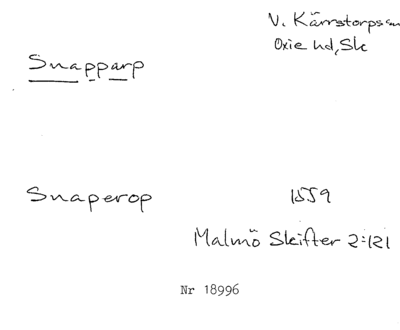 V. Kärrstorps sn
Oxie hd, Sk
Snapparp
Snaperop 1559
Malmö Skifter 2:121
Nr 18996